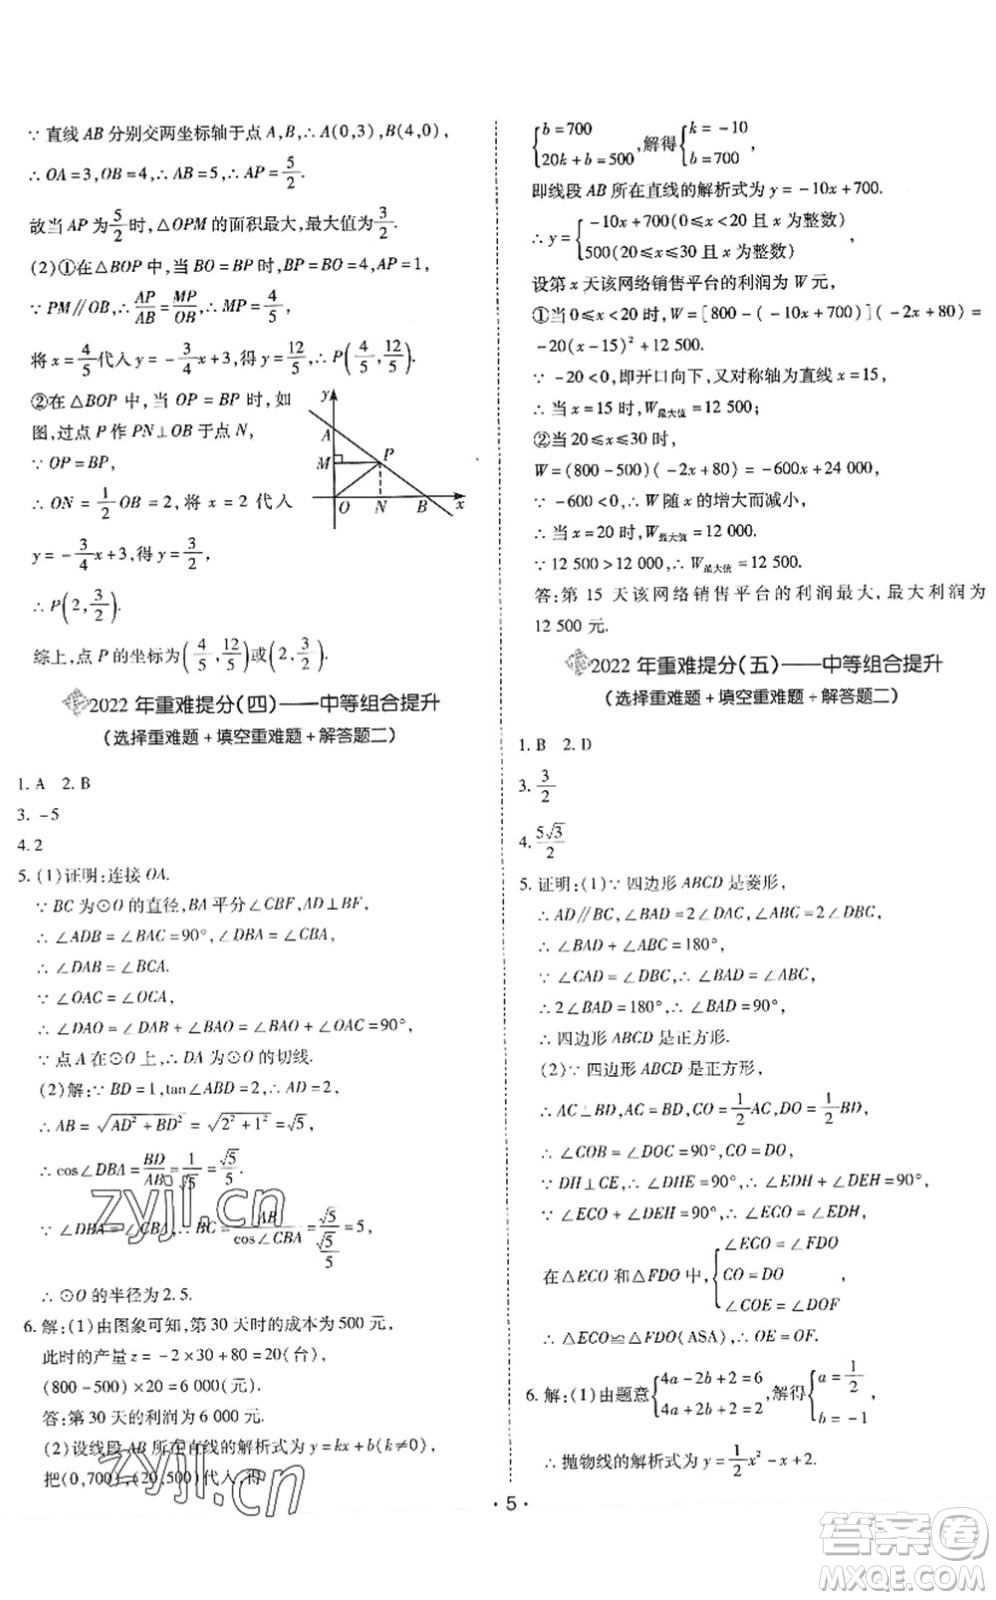 ∵ 直线 AB 分别交两坐标轴于点 A,B,∴ A(0,3),B(4,0),
∴ OA=3,OB=4,∴ AB=5,∴ AP=5/2.
故当 AP 为 5/2 时,△OPM 的面积最大,最大值为 3/2.
(2)①在△BOP 中,当 BO=BP 时,BP=4,AP=1,
∵ PM∥OB,∴ AP/AB=MP/OB,∴ MP=4/5,
将 x=4/5 代入 y=-3/4x+3,得 y=12/5,∴ P(4/5,12/5).
②在△BOP 中,当 OP=BP 时,如
图,过点 P 作 PN⊥OB 于点 N,
∵ OP=BP,
∴ ON=1/2OB=2,将 x=2 代入
y=-3/4x+3,得 y=3/2,
∴ P(2,3/2).
y A M P O N B x
综上,点 P 的坐标为(4/5,12/5)或(2,3/2).
2022 年重难提分(四)——中等组合提升
(选择重难题+填空重难题+解答题二)
1. A 2. B
3. -5
4. 2
5. (1)证明:连接 OA.
∵ BC 为⊙O 的直径,BA 平分∠CBF,AD⊥BF,
∴ ∠ADB=∠BAC=90°,∠DBA=∠CBA,
∴ ∠DAB=∠BCA.
∵ ∠OAC=∠OCA,
∴ ∠DAO=∠DAB+∠BAO=∠BAO+∠OAC=90°,
∵ 点 A 在⊙O 上,∴ DA 为⊙O 的切线.
(2)解:∵ BD=1,tan∠ABD=2,∴ AD=2,
∴ AB=√(AD²+BD²)=√(2²+1²)=√5,
∴ cos∠DBA=BD/AB=1/√5=√5/5.
∵ ∠DBA=∠CBA,∴ BC=AB/cos∠CBA=√5/(√5/5)=5,
∴ ⊙O 的半径为 2.5.
6. 解:(1)由图象可知,第 30 天时的成本为 500 元,
此时的产量 z=-2×30+80=20(台),
(800-500)×20=6 000(元).
答:第 30 天的利润为 6 000 元.
(2)设线段 AB 所在直线的解析式为 y=kx+b(k≠0),
把(0,700),(20,500)代入,得
{b=700 20k+b=500,解得{k=-10 b=700,
即线段 AB 所在直线的解析式为 y=-10x+700.
∴ y={-10x+700(0≤x<20 且 x 为整数) 500(20≤x≤30 且 x 为整数),
设第 x 天该网络销售平台的利润为 W 元,
①当 0≤x<20 时,W=[800-(-10x+700)](-2x+80)=
-20(x-15)²+12 500.
∵ -20<0,即开口向下,又对称轴为直线 x=15,
∴ 当 x=15 时,W最大值=12 500;
②当 20≤x≤30 时,
W=(800-500)(-2x+80)=-600x+24 000,
∵ -600<0,∴ W 随 x 的增大而减小,
∴ 当 x=20 时,W最大值=12 000.
∵ 12 500>12 000,∴ W最大值=12 500.
答:第 15 天该网络销售平台的利润最大,最大利润为
12 500 元.
2022 年重难提分(五)——中等组合提升
(选择重难题+填空重难题+解答题二)
1. B 2. D
3. 3/2
4. 5√3/2
5. 证明:(1)∵ 四边形 ABCD 是菱形,
∴ AD∥BC,∠BAD=2∠DAC,∠ABC=2∠DBC,
∴ ∠BAD+∠ABC=180°,
∵ ∠CAD=∠DBC,∴ ∠BAD=∠ABC,
∴ 2∠BAD=180°,∴ ∠BAD=90°,
∴ 四边形 ABCD 是正方形.
(2)∵ 四边形 ABCD 是正方形,
∴ AC⊥BD,AC=BD,CO=1/2AC,DO=1/2BD,
∴ ∠COB=∠DOC=90°,CO=DO,
∵ DH⊥CE,∴ ∠DHE=90°,∴ ∠EDH+∠DEH=90°,
∵ ∠ECO+∠DEH=90°,∴ ∠ECO=∠EDH,
在△ECO 和△FDO 中,{∠ECO=∠FDO CO=DO ∠COE=∠DOF,
∴ △ECO≌△FDO(ASA),∴ OE=OF.
6. 解:(1)由题意{4a-2b+2=6 4a+2b+2=2,解得{a=1/2 b=-1,
∴ 抛物线的解析式为 y=1/2x²-x+2.
· 5 ·
zyjl.cn
zyjl.cn
答案圈
MXQE.COM